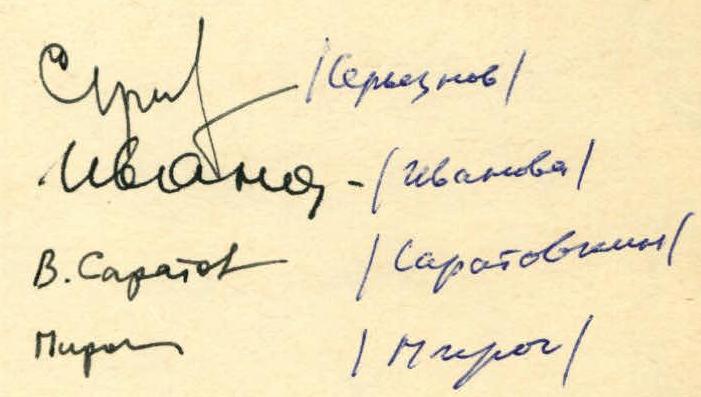 /Серьезнов/
Ивано - /Иванова/
В. Саратов /Саратовкин/
Миро /Мирон/